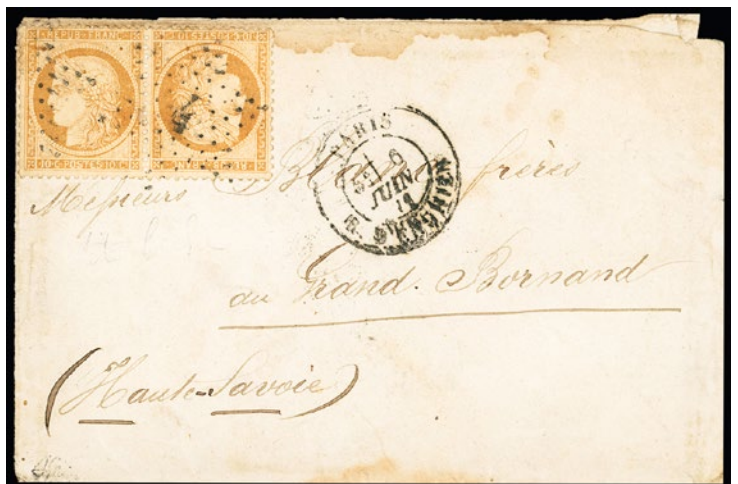 REPUB. FRANC.
10 C. POSTES 10 C.
REPUB. FRANC.
10 C. POSTES 10 C.
PARIS
6
JUIN
R. D'ENGHIEN
Messieurs Blanc frères
au Grand-Bornand
(Haute-Savoie)